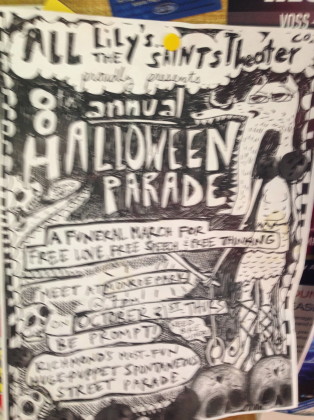 ALL Lily's
THE SAINTS Theater co.
proudly presents
8th annual
HALLOWEEN
PARADE
A FUNERAL MARCH FOR
FREE LOVE FREE SPEECH & FREE THINKING
MEET AT MONROE PARK
@ 7pm
ON OCTOBER 31ST, THURS
BE PROMPT!
RICHMOND'S MOST-FUN
HUGE-PUPPET SPONTANEOUS
STREET PARADE
VOSS